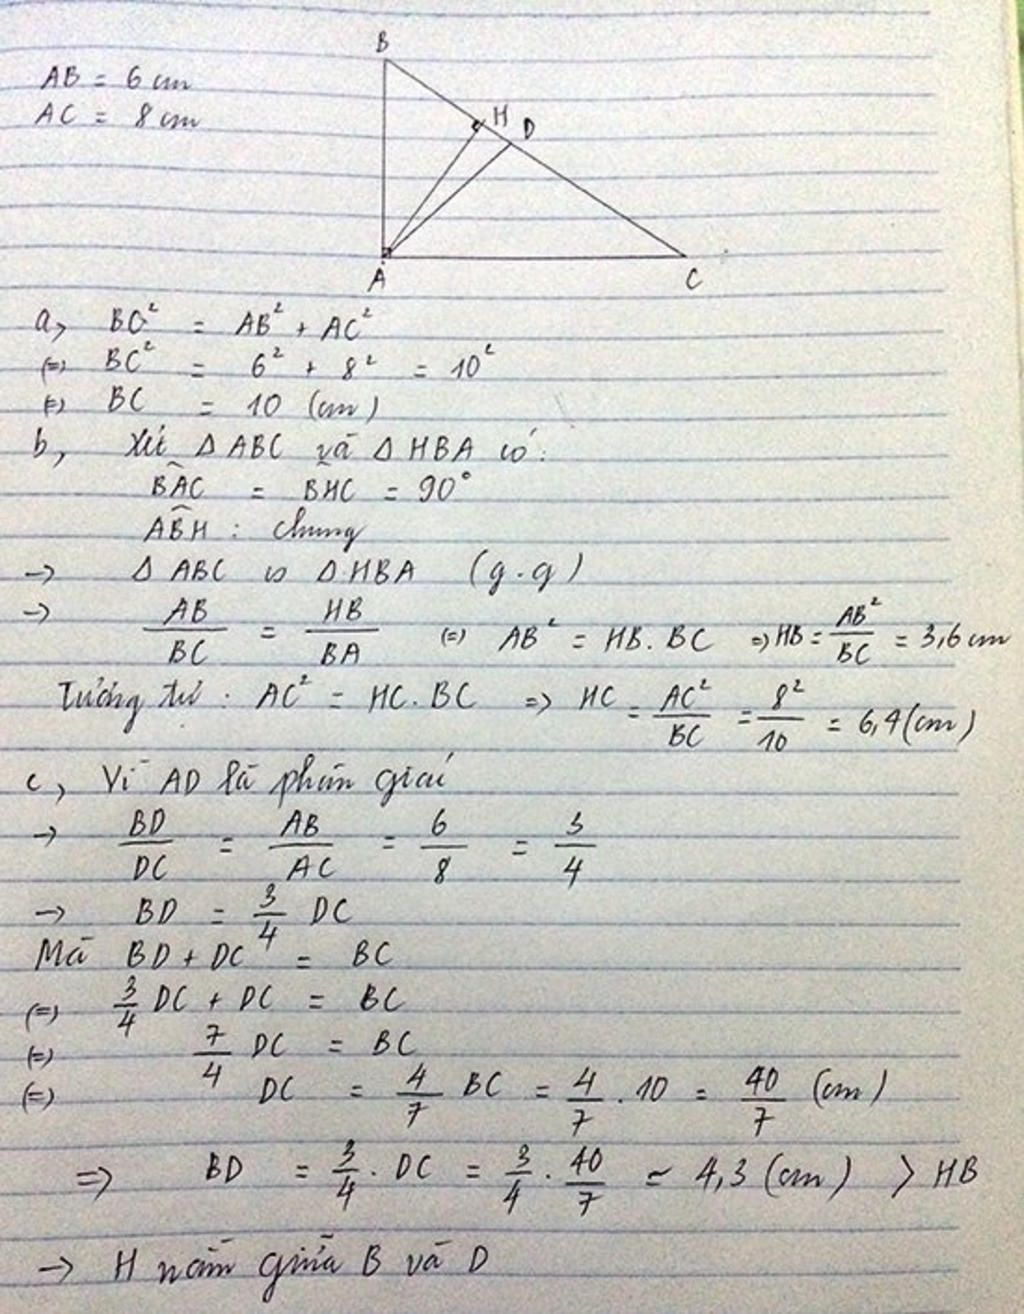 AB = 6 cm
AC = 8 cm
B
H
D
A
C
a, BC² = AB² + AC²
(=) BC² = 6² + 8² = 10²
(=) BC = 10 (cm)
b, Xét Δ ABC và Δ HBA có:
B̂AC = B̂HC = 90°
ABH : chung
-> Δ ABC ∽ Δ HBA (g.g)
-> AB/BC = HB/BA (=) AB² = HB. BC => HB = AB²/BC = 3,6 cm
Tương tự : AC² = HC. BC => HC = AC²/BC = 8²/10 = 6,4 (cm)
c, Vì AD là phân giác
-> BD/DC = AB/AC = 6/8 = 3/4
-> BD = 3/4 DC
Mà BD + DC = BC
(=) 3/4 DC + DC = BC
(=) 7/4 DC = BC
(=) DC = 4/7 BC = 4/7 . 10 = 40/7 (cm)
=> BD = 3/4 . DC = 3/4 . 40/7 ≈ 4,3 (cm) > HB
-> H nằm giữa B và D